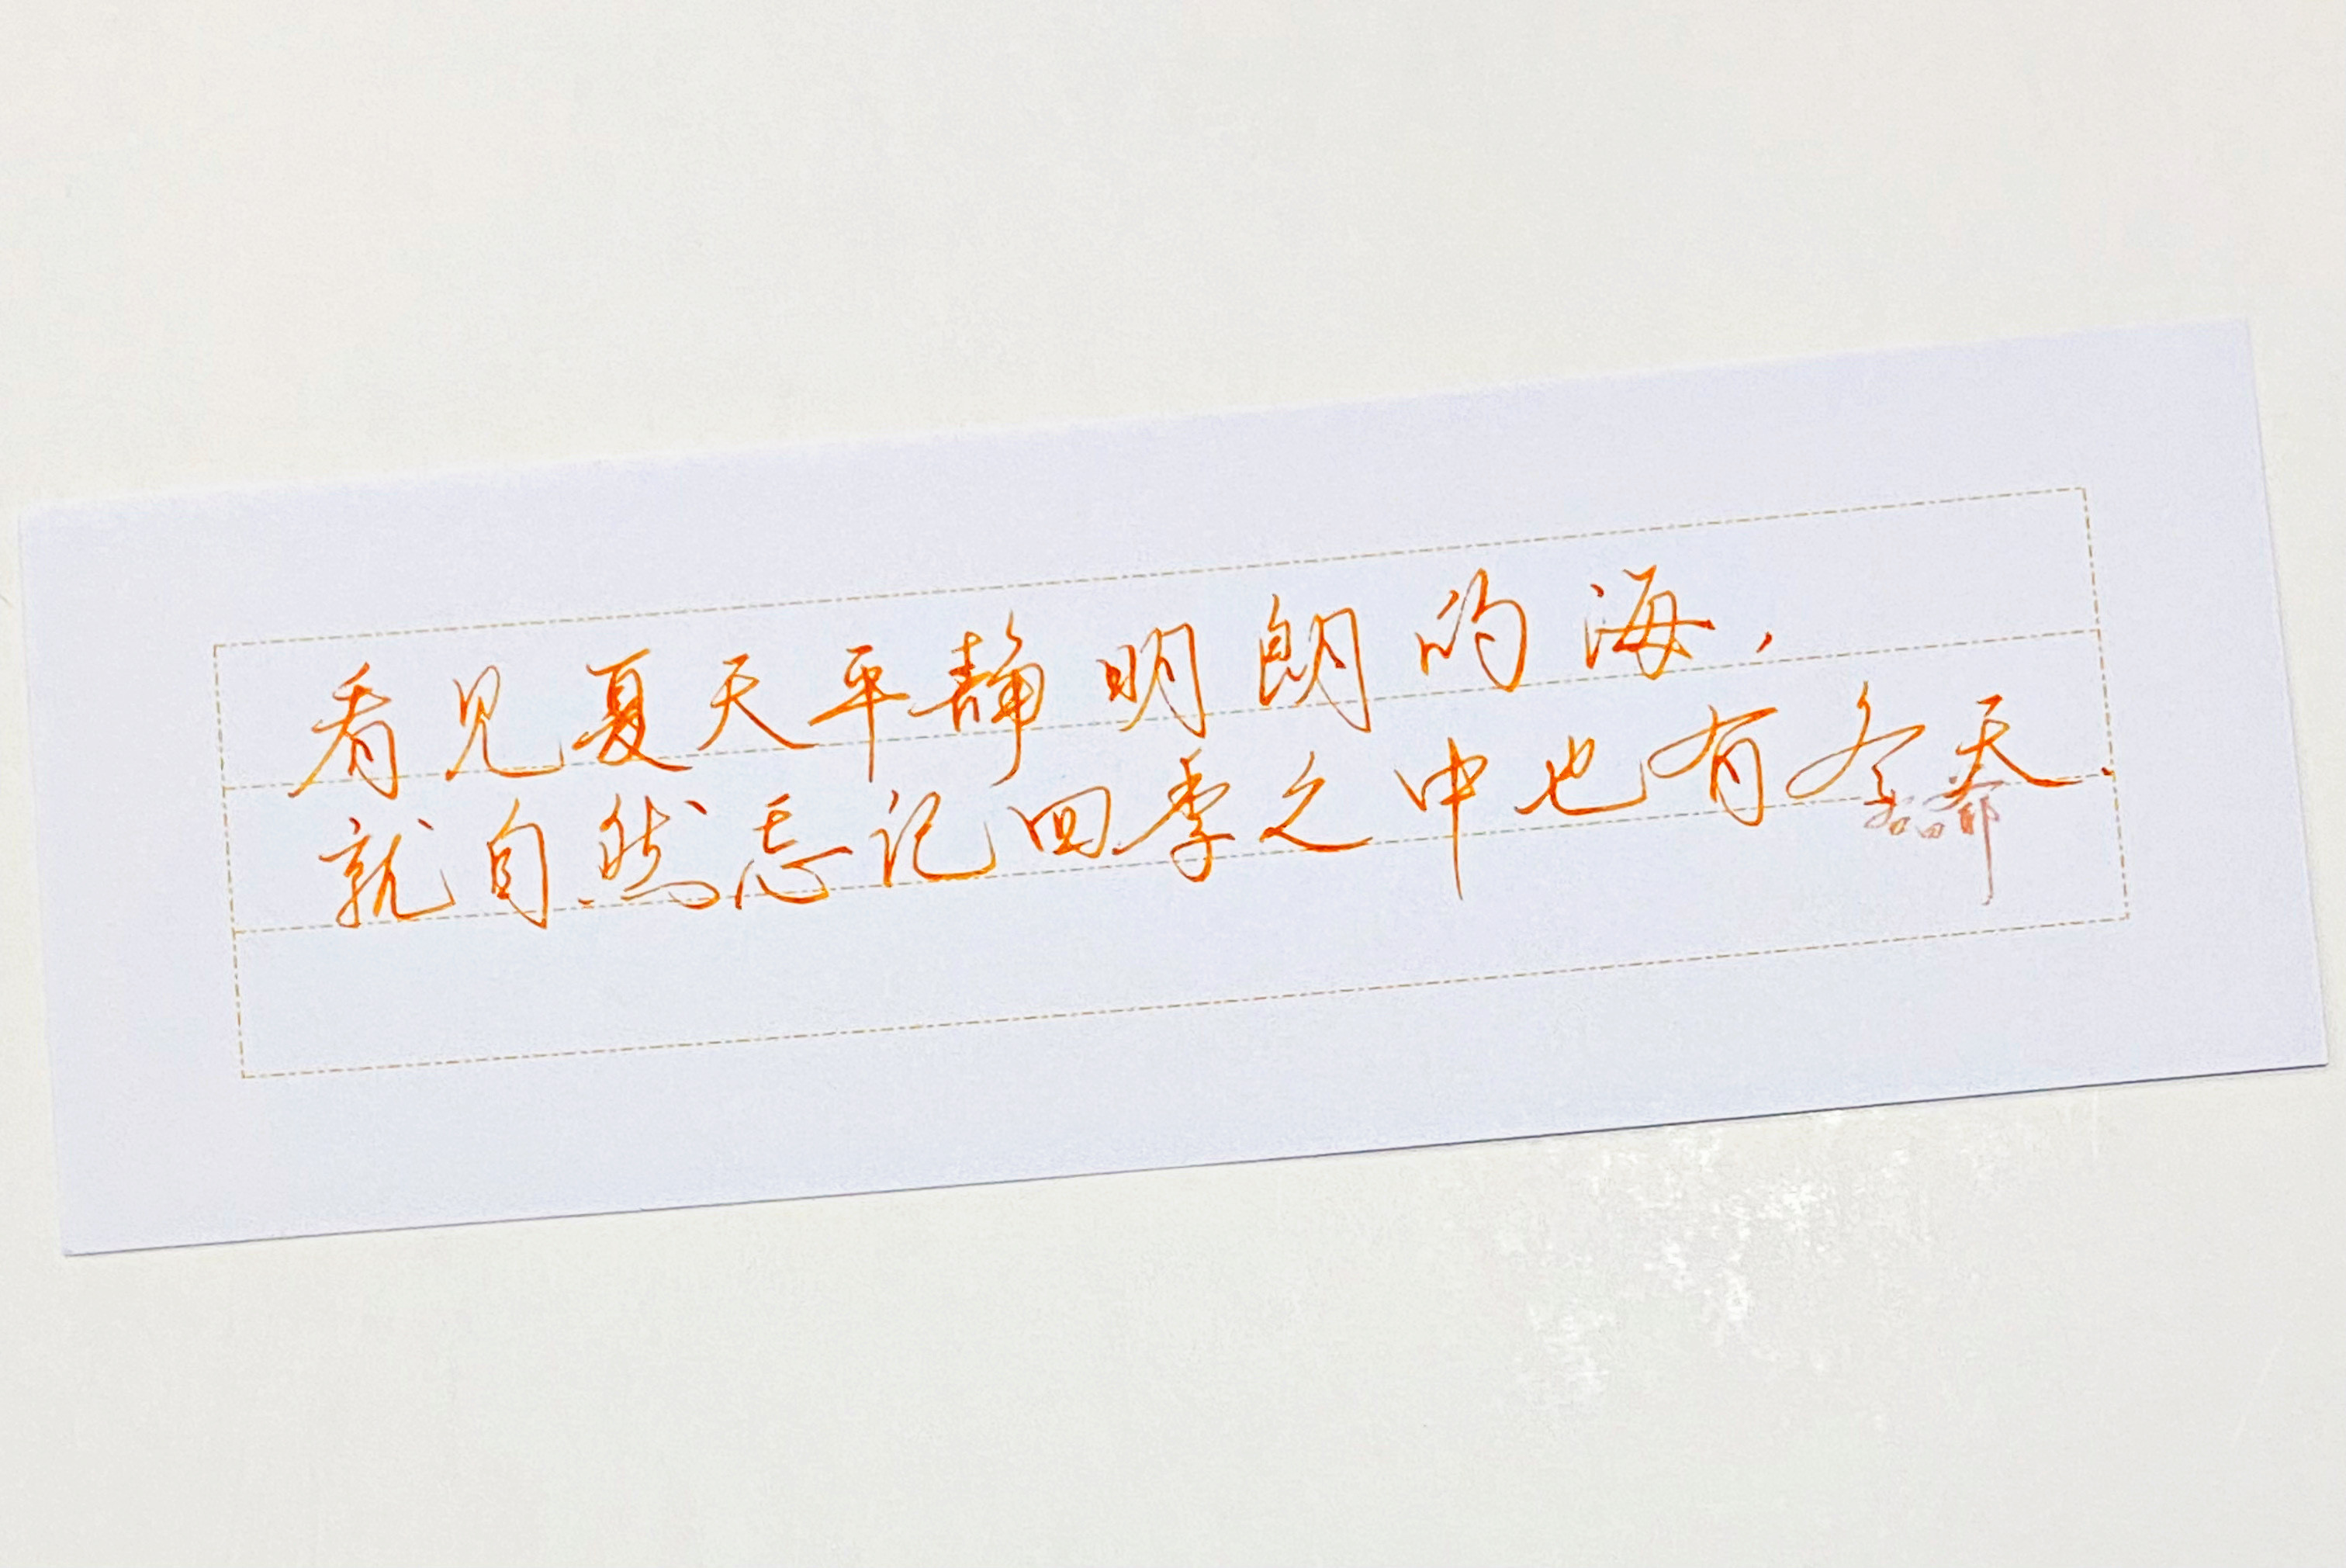 看见夏天平静明朗的海，
就自然忘记四季之中也有冬天.